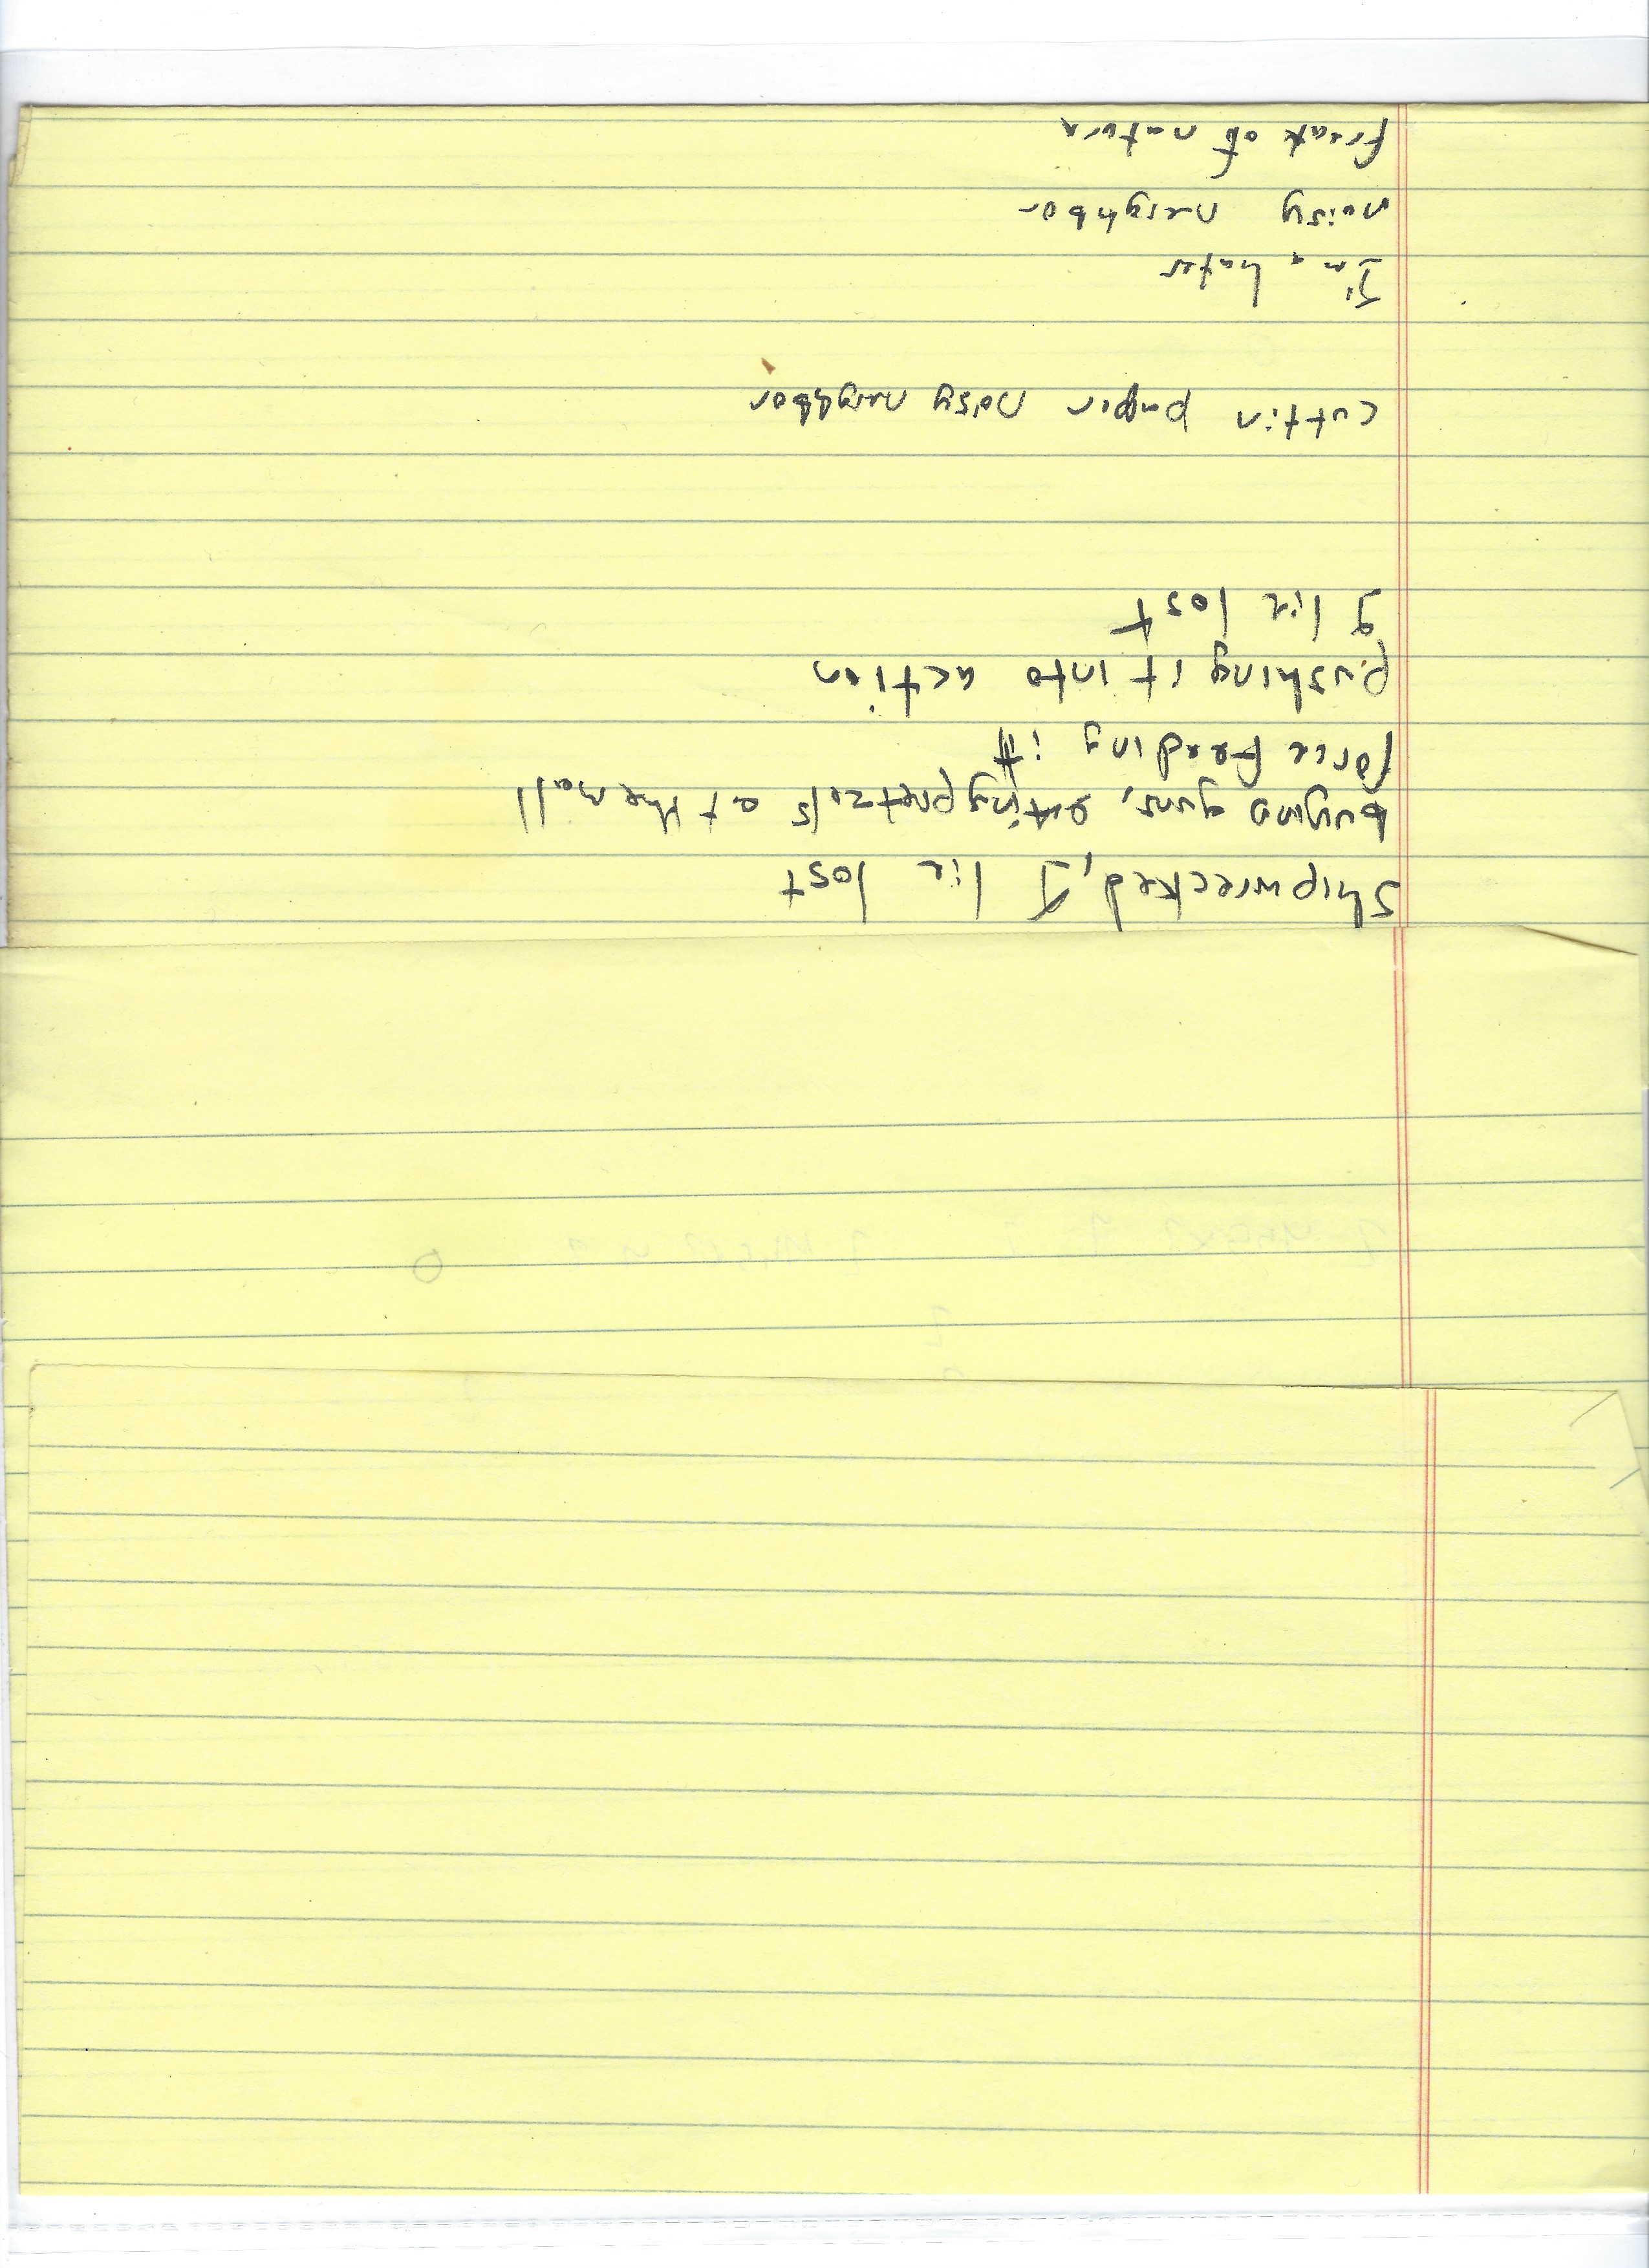 Shipwrecked, I lie lost
buying guns, eating pretzels at the mall
force feeding it
pushing it into action
I lie lost
cuttin paper noisy neighbor
I'm a hater
noisy neighbor
freak of nature